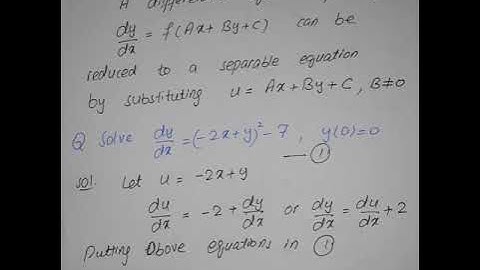 A
dy/dx = f(Ax + By + C) can be
reduced to a separable equation
by substituting u = Ax + By + C, B≠0
Q Solve dy/dx = (-2x+y)² - 7, y(0)=0
— ①
Sol. Let u = -2x+y
du/dx = -2 + dy/dx or dy/dx = du/dx + 2
Putting above equations in ①